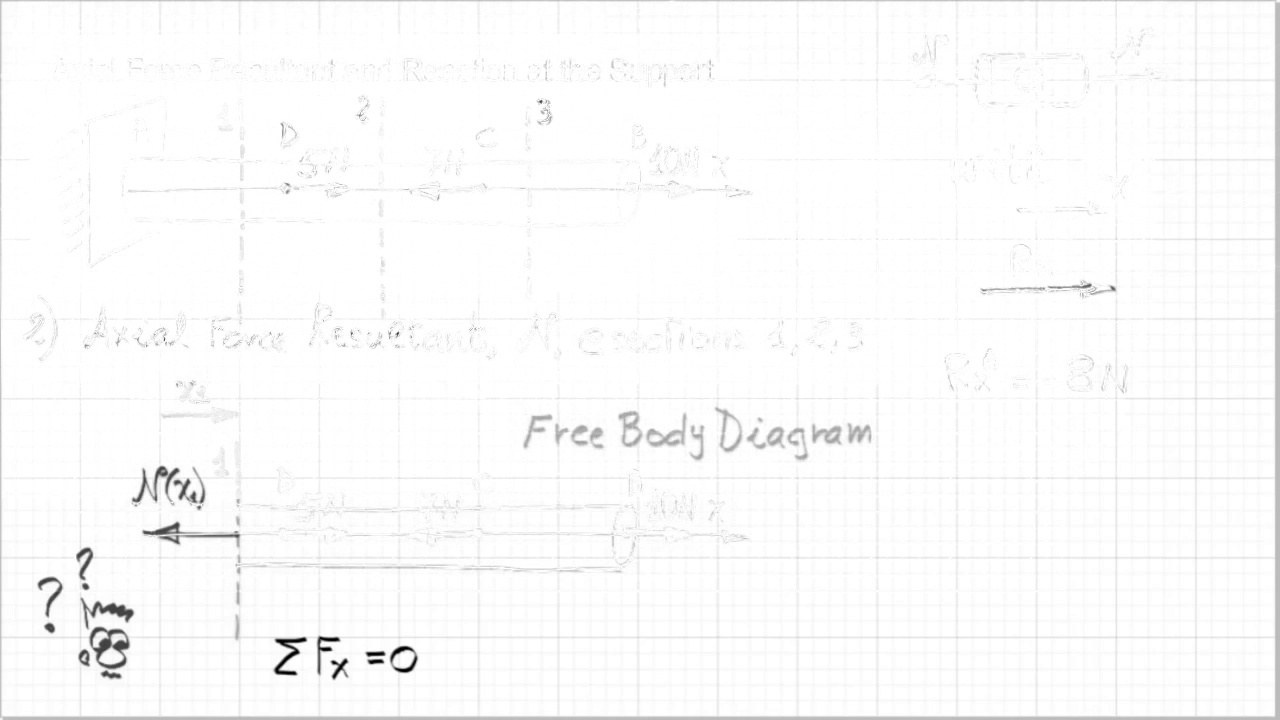 Axial Force Resultant and Reaction of the Support
N N
1 2 3
A D C B
5N 7N 10N x
with
x
2) Axial Force Resultant, N, @ sections 1,2,3
Rx^A = -8N
x1
Free Body Diagram
1
N(x1) D C B
5N 7N 10N x
?
?
ΣFx = 0